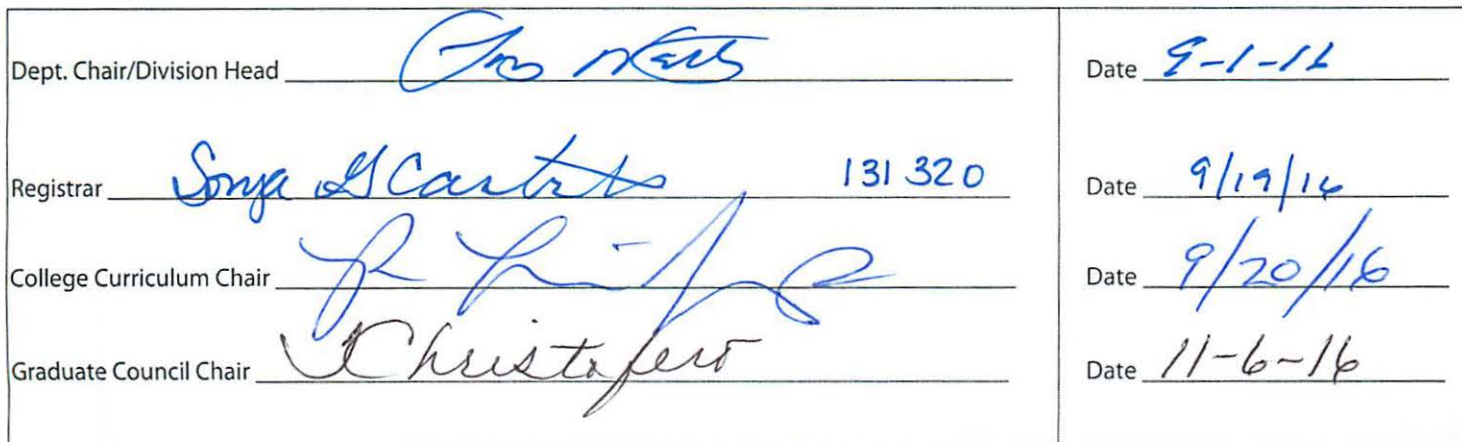 Dept. Chair/Division Head Date 9-1-16
Registrar Sonja G Cantrell 131320 Date 9/19/16
College Curriculum Chair Date 9/20/16
Graduate Council Chair Christofero Date 11-6-16